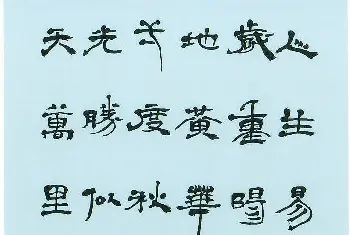 人生易
歲重陽
地黃華
弌度秋
光勝似
天萬里